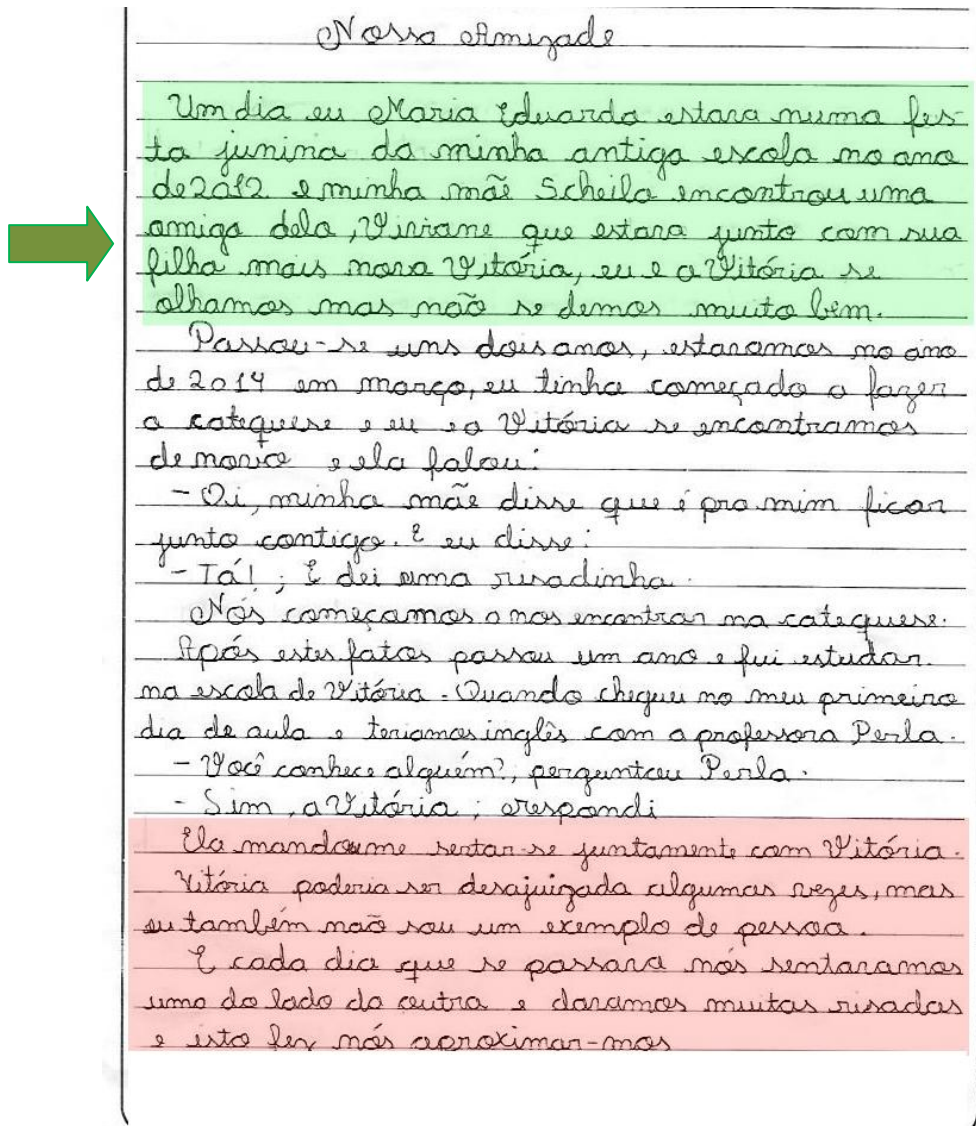 Nossa Amizade
Um dia eu Maria Eduarda estava numa fes-
ta junina da minha antiga escola no ano
de 2012 e minha mãe Scheila encontrou uma
amiga dela, Viviane que estava junto com sua
filha mais nova Vitória, eu e a Vitória se
olhamos mas não se demos muito bem.
Passou-se uns dois anos, estavamos no ano
de 2014 em março, eu tinha começado a fazer
a catequese e eu e a Vitória se encontramos
de novo e ela falou:
- Oi, minha mãe disse que é pra mim ficar
junto contigo. E eu disse:
- Tá!; E dei uma risadinha.
Nós começamos a nos encontrar na catequese.
Após estes fatos passou um ano e fui estudar
na escola de Vitória. Quando cheguei no meu primeiro
dia de aula e teriamos inglês com a professora Perla.
- Você conhece alguém?, perguntou Perla.
- Sim, a Vitória; respondi
Ela mandou-me sentar-se juntamente com Vitória.
Vitória poderia ser desajuizada algumas vezes, mas
eu também não sou um exemplo de pessoa.
E cada dia que se passava nós sentavamos
uma do lado da outra e davamos muitas risadas
e isto fez nós aproximar-mos